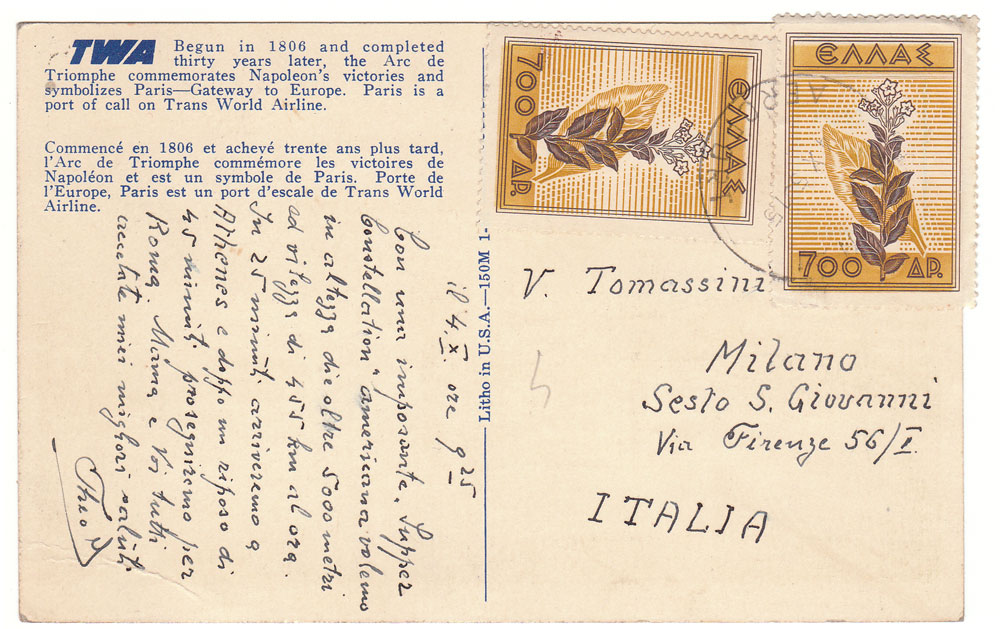 TWA Begun in 1806 and completed
thirty years later, the Arc de
Triomphe commemorates Napoleon's victories and
symbolizes Paris—Gateway to Europe. Paris is a
port of call on Trans World Airline.
Commencé en 1806 et achevé trente ans plus tard,
l'Arc de Triomphe commémore les victoires de
Napoléon et est un symbole de Paris. Porte de
l'Europe, Paris est un port d'escale de Trans World
Airline.
il 4. X. ore 9 25
Con una imposante "Supper
Constellation" americana voliamo
in altezza die oltre 5000 metri
ad vitezza di 455 km al ora.
In 25 minuti arriveremo a
Athenes e doppo un riposo di
45 minuti proseguiremo per
Roma. Mama e Voi tutti
accettate miei migliori saluti
Theo
Litho in U.S.A.—150M 1-
ΕΛΛΑΣ
700 ΔΡ.
ΕΛΛΑΣ
700 ΔΡ.
V. Tomassini
Milano
Sesto S. Giovanni
Via Firenze 56/I
ITALIA